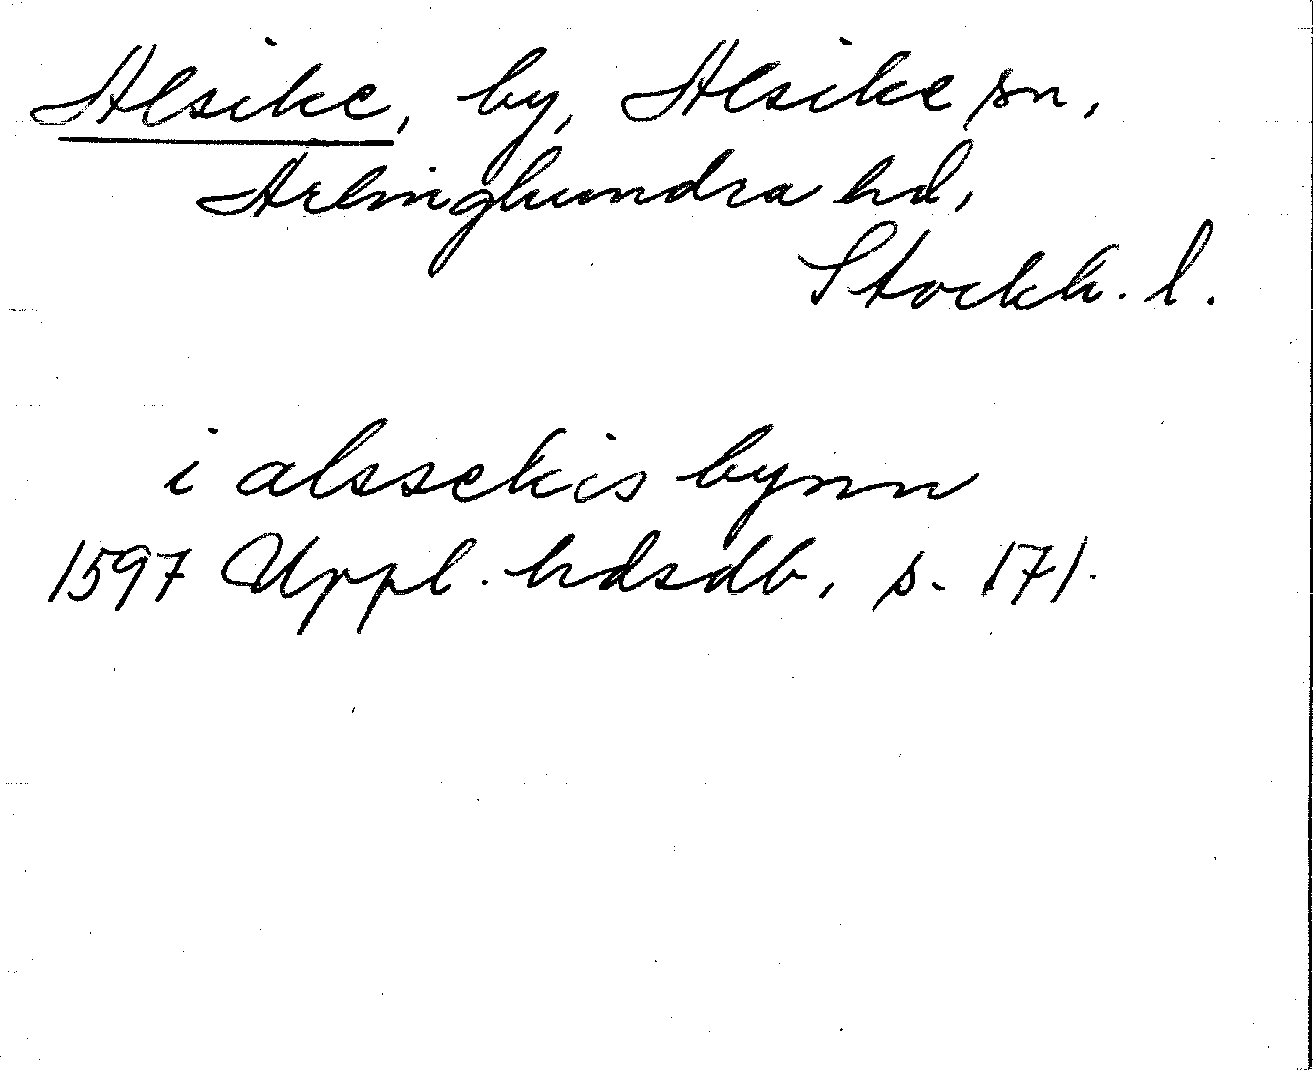 Alsike, by, Alsike sn,
Ärlinghundra hd,
Stockh. l.
i alssekis bynn
1597 Uppl. hdsdb, s. 171.